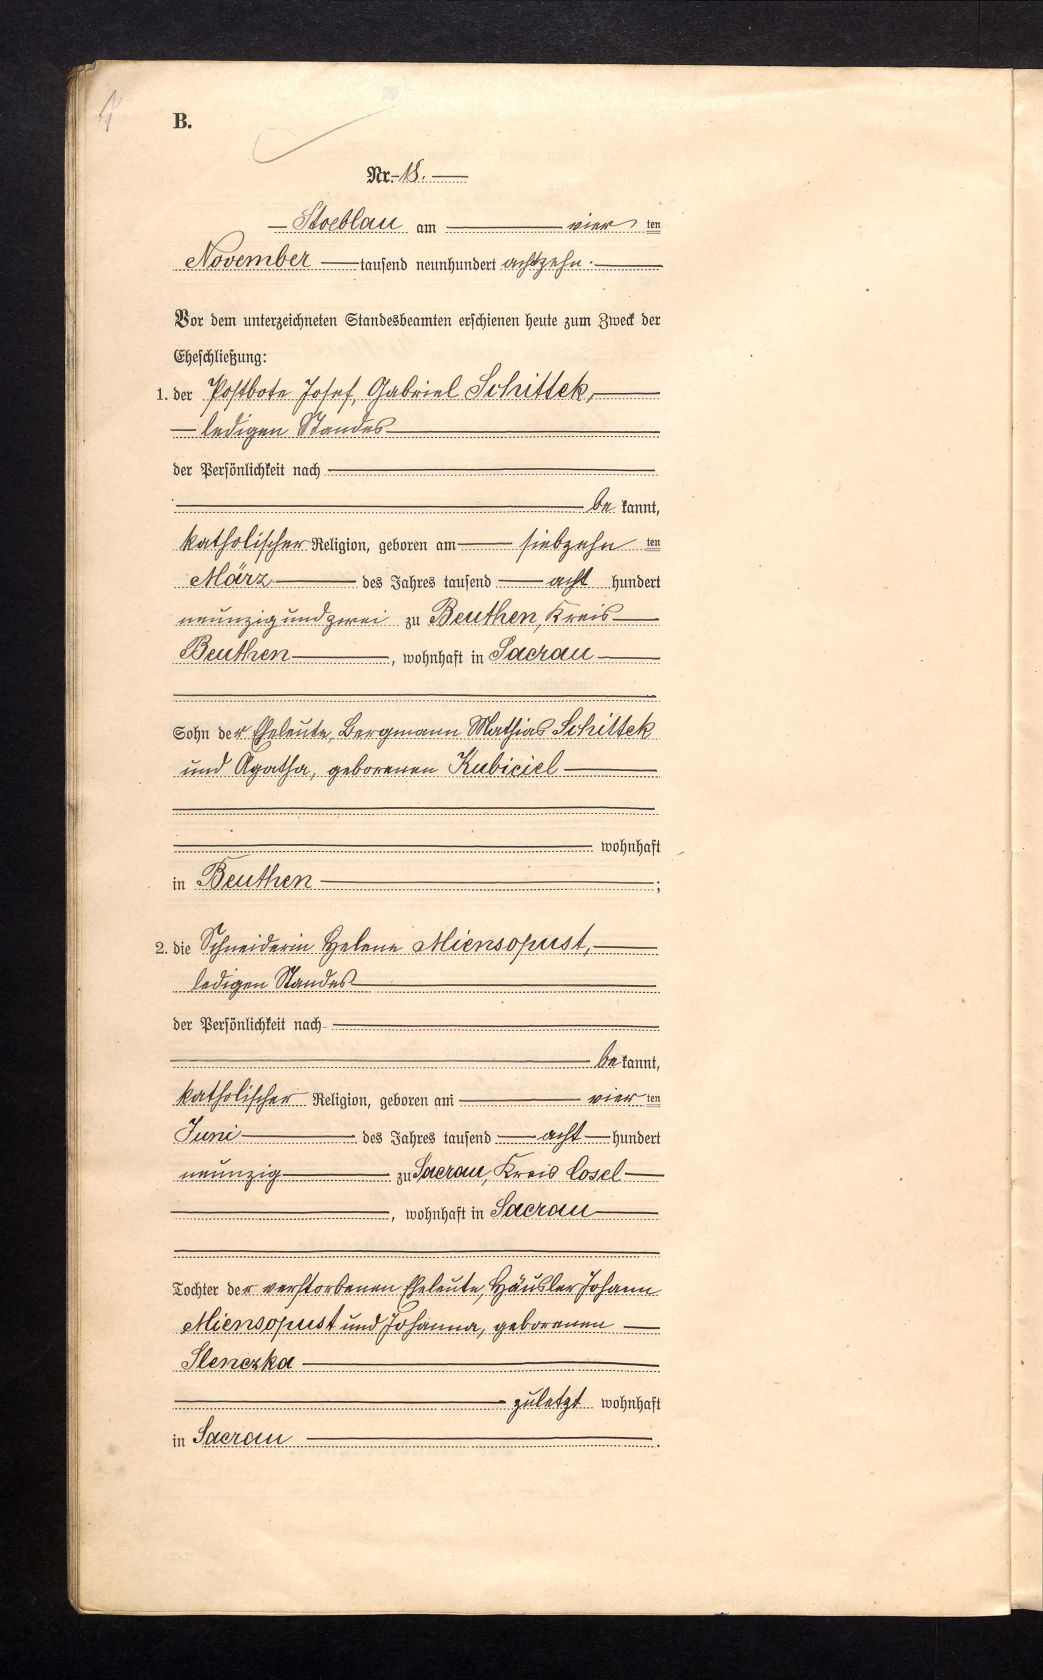 B.
Nr. 18.
Stoeblau am vier ten
November tausend neunhundert achtzehn.
Vor dem unterzeichneten Standesbeamten erschienen heute zum Zweck der
Eheschließung:
1. der Postbote Josef, Gabriel Schittek,
ledigen Standes
der Persönlichkeit nach
be kannt,
katholischer Religion, geboren am siebzehn ten
März des Jahres tausend acht hundert
neunzig und zwei zu Beuthen, Kreis
Beuthen, wohnhaft in Sacrau
Sohn der Eheleute, Bergmann Mathias Schittek
und Agatha, geborenen Kubiciel
wohnhaft
in Beuthen;
2. die Schneiderin Helene Miensopust,
ledigen Standes
der Persönlichkeit nach
be kannt,
katholischer Religion, geboren am vier ten
Juni des Jahres tausend acht hundert
neunzig zu Sacrau, Kreis Cosel
, wohnhaft in Sacrau
Tochter der verstorbenen Eheleute, Häusler Johann
Miensopust und Johanna, geborenen
Slenczka
zuletzt wohnhaft
in Sacrau.